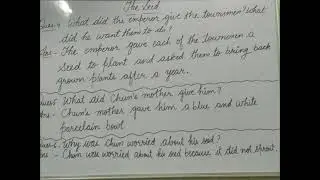 The Seed
Ques-4 What did the emperor give the townmen? What
did he want them to do?
Ans- The emperor gave each of the townmen a
seed to plant and asked them to bring back
grown plants after a year.
Ques-5 What did Chun's mother give him?
Ans- Chun's mother gave him a blue and white
porcelain bowl.
Ques-6 Why was Chun worried about his seed?
Ans- Chun was worried about his seed because it did not sprout.